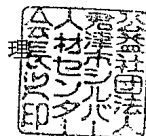 公益社団法人
津市シルバー
人材センター
会長之印
理